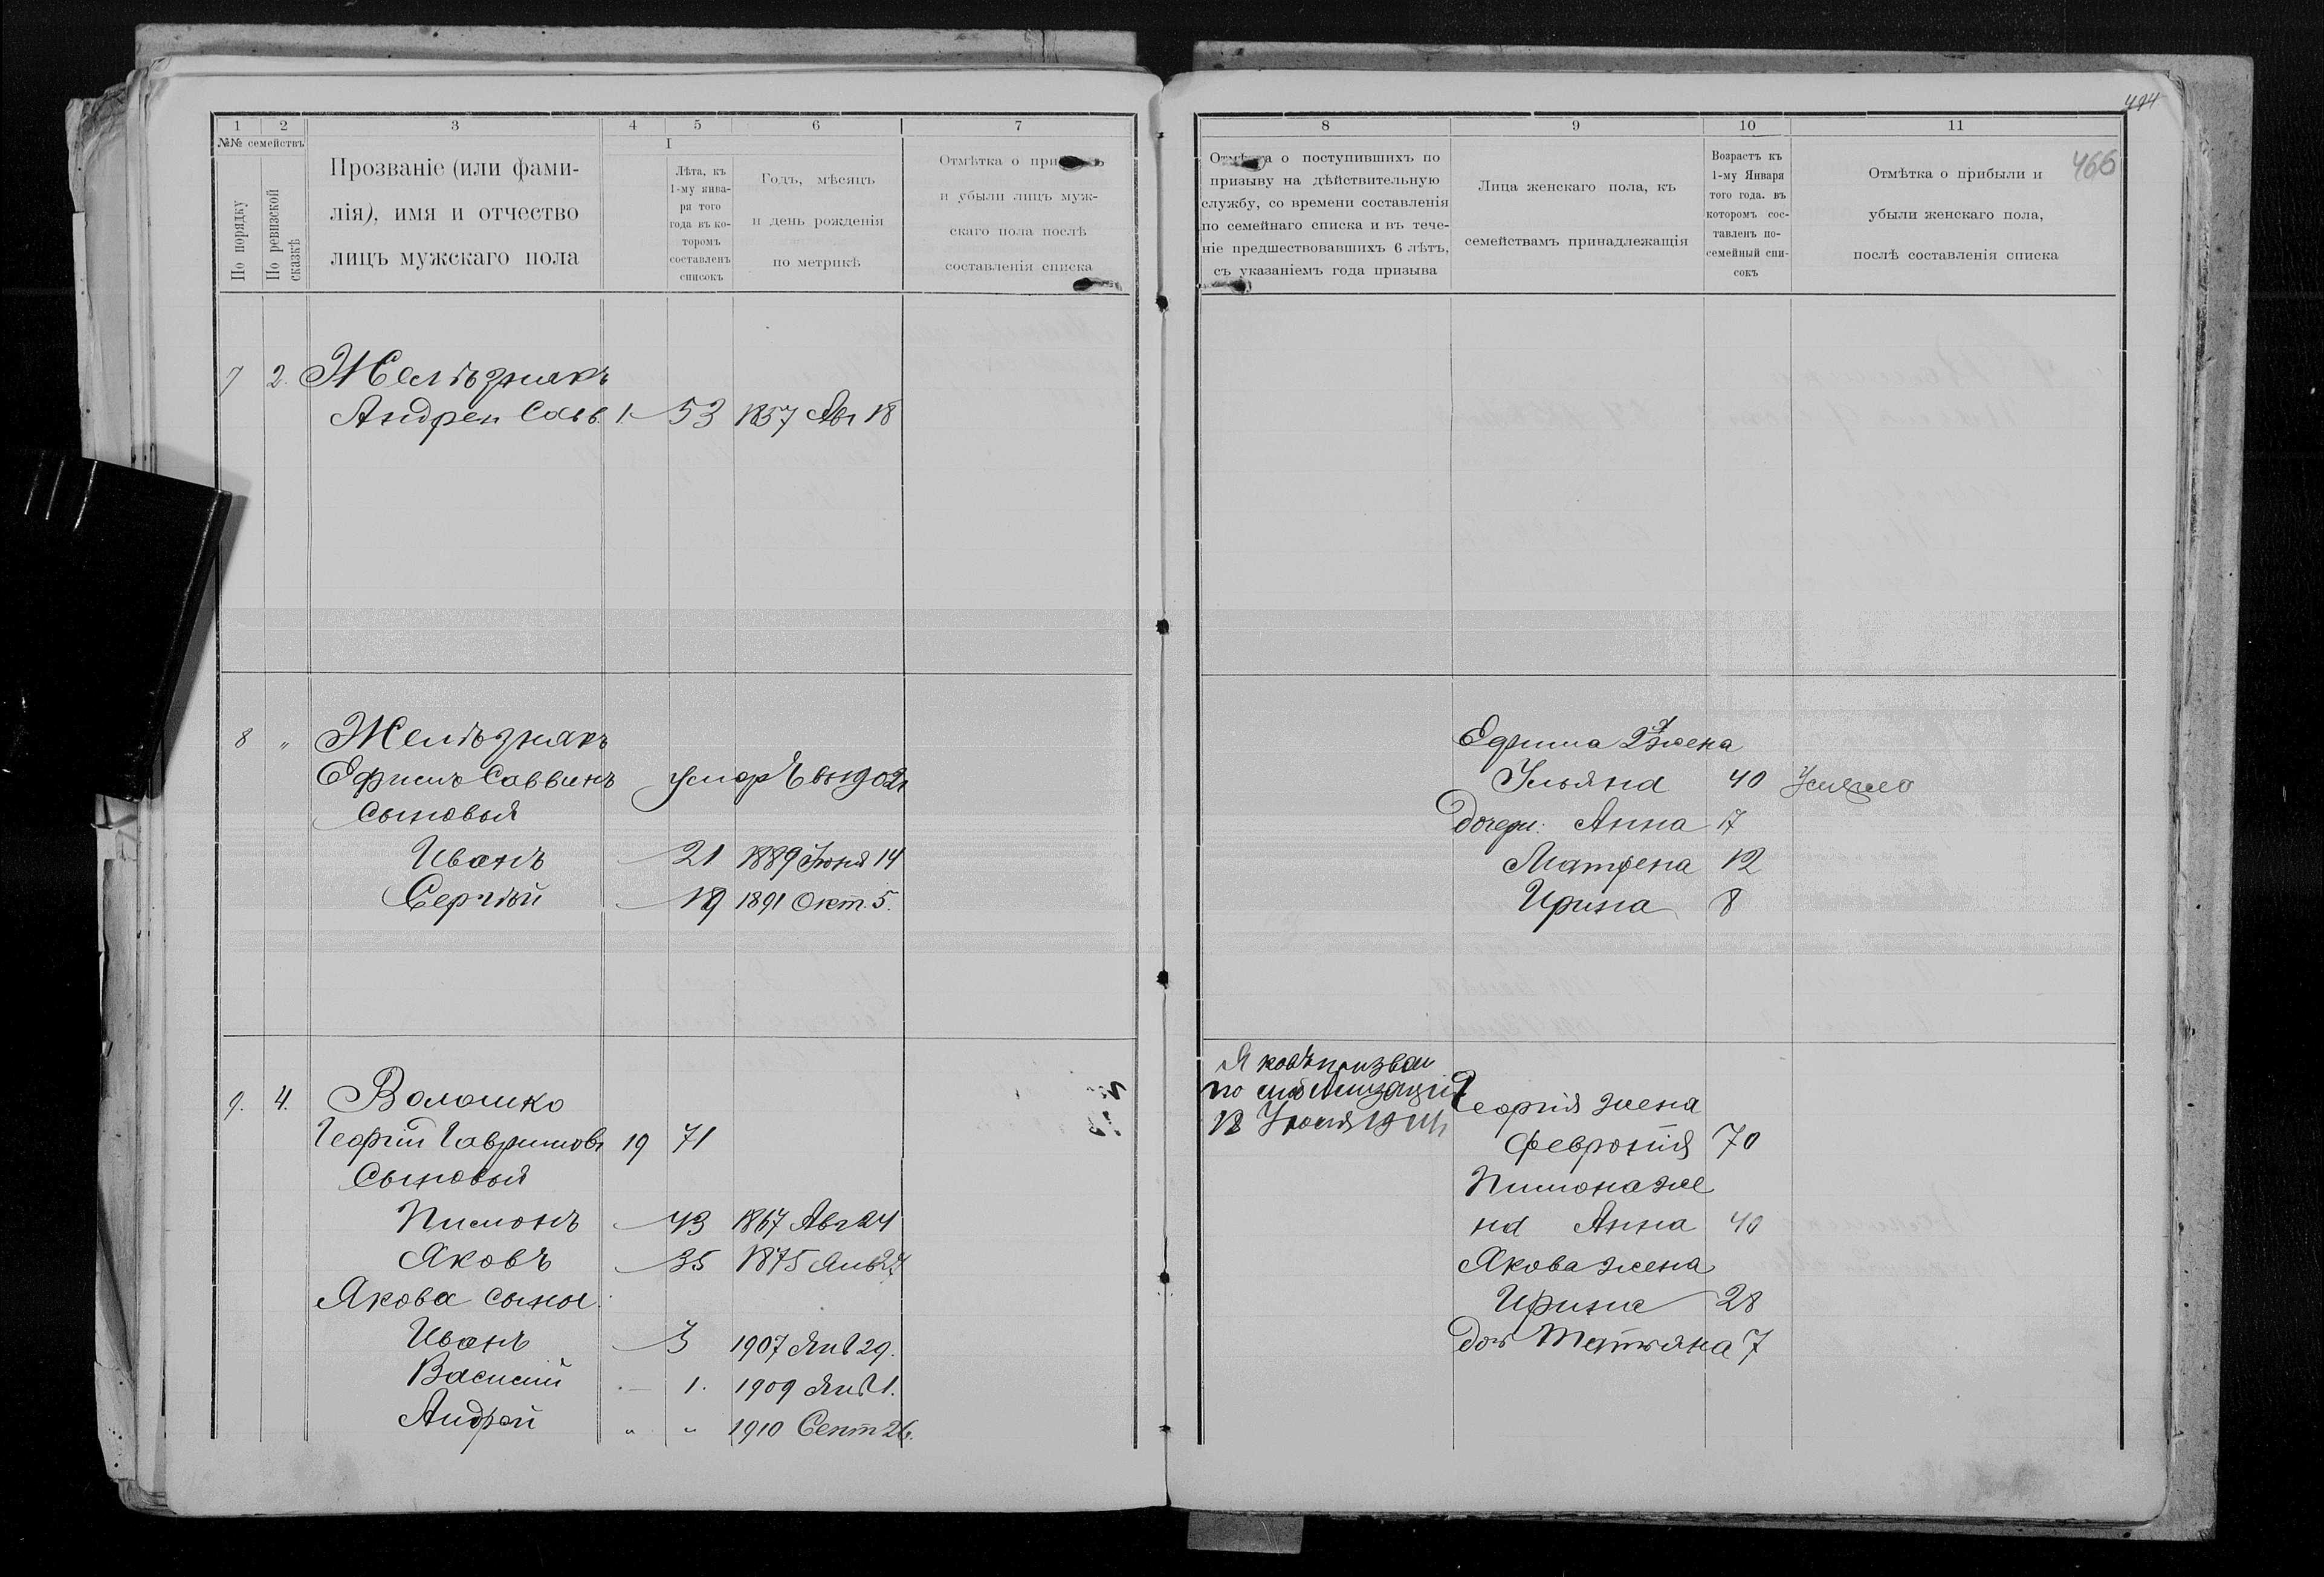 494
466
1 2 3 4 5 6 7
№№ семействъ
По порядку
По ревизской сказкѣ
Прозваніе (или фами-
лія), имя и отчество
лицъ мужскаго пола
I
Лѣта, къ
1-му янва-
ря того
года въ ко-
торомъ
составленъ
списокъ
Годъ, мѣсяцъ
и день рожденія
по метрикѣ
Отмѣтка о
и убыли лицъ муж-
скаго пола послѣ
составленія списка
8 9 10 11
Отмѣтка о поступившихъ по
призыву на дѣйствительную
службу, со времени составленія
по семейнаго списка и въ тече-
ніе предшествовавшихъ 6 лѣтъ,
съ указаніемъ года призыва
Лица женскаго пола, къ
семействамъ принадлежащія
Возрастъ къ
1-му Января
того года. въ
которомъ сос-
тавленъ по-
семейный спи-
сокъ
Отмѣтка о прибыли и
убыли женскаго пола,
послѣ составленія списка
7 2. Желѣзнякъ
Андрей Савв. 1 53 1857 Авг 18
8 " Желѣзнякъ
Ефимъ Саввинъ умеръ въ 1902г
Сыновья
Иванъ — 21 1889 Іюня 14
Сергѣй — 19 1891 Окт. 5.
Ефима жена
Ульяна 40
Дочери: Анна 17
Матрена 12
Ирина 8
9. 4. Волошко
Георгій Гавриловъ 19 71
Сыновья
Пимонъ — 43 1867 Авг 24
Яковъ — 35 1875 Янв 27
Якова сыны
Иванъ — 3 1907 Янв 29.
Василій — 1. 1909 Янв 1.
Андрей " " 1910 Сент 26.
Яковъ призван
по мобилизаціи
18 Іюля 1914г
Георгія жена
Февронія 70
Пимона же
на Анна 40
Якова жена
Ирина 28
дочь Татьяна 7